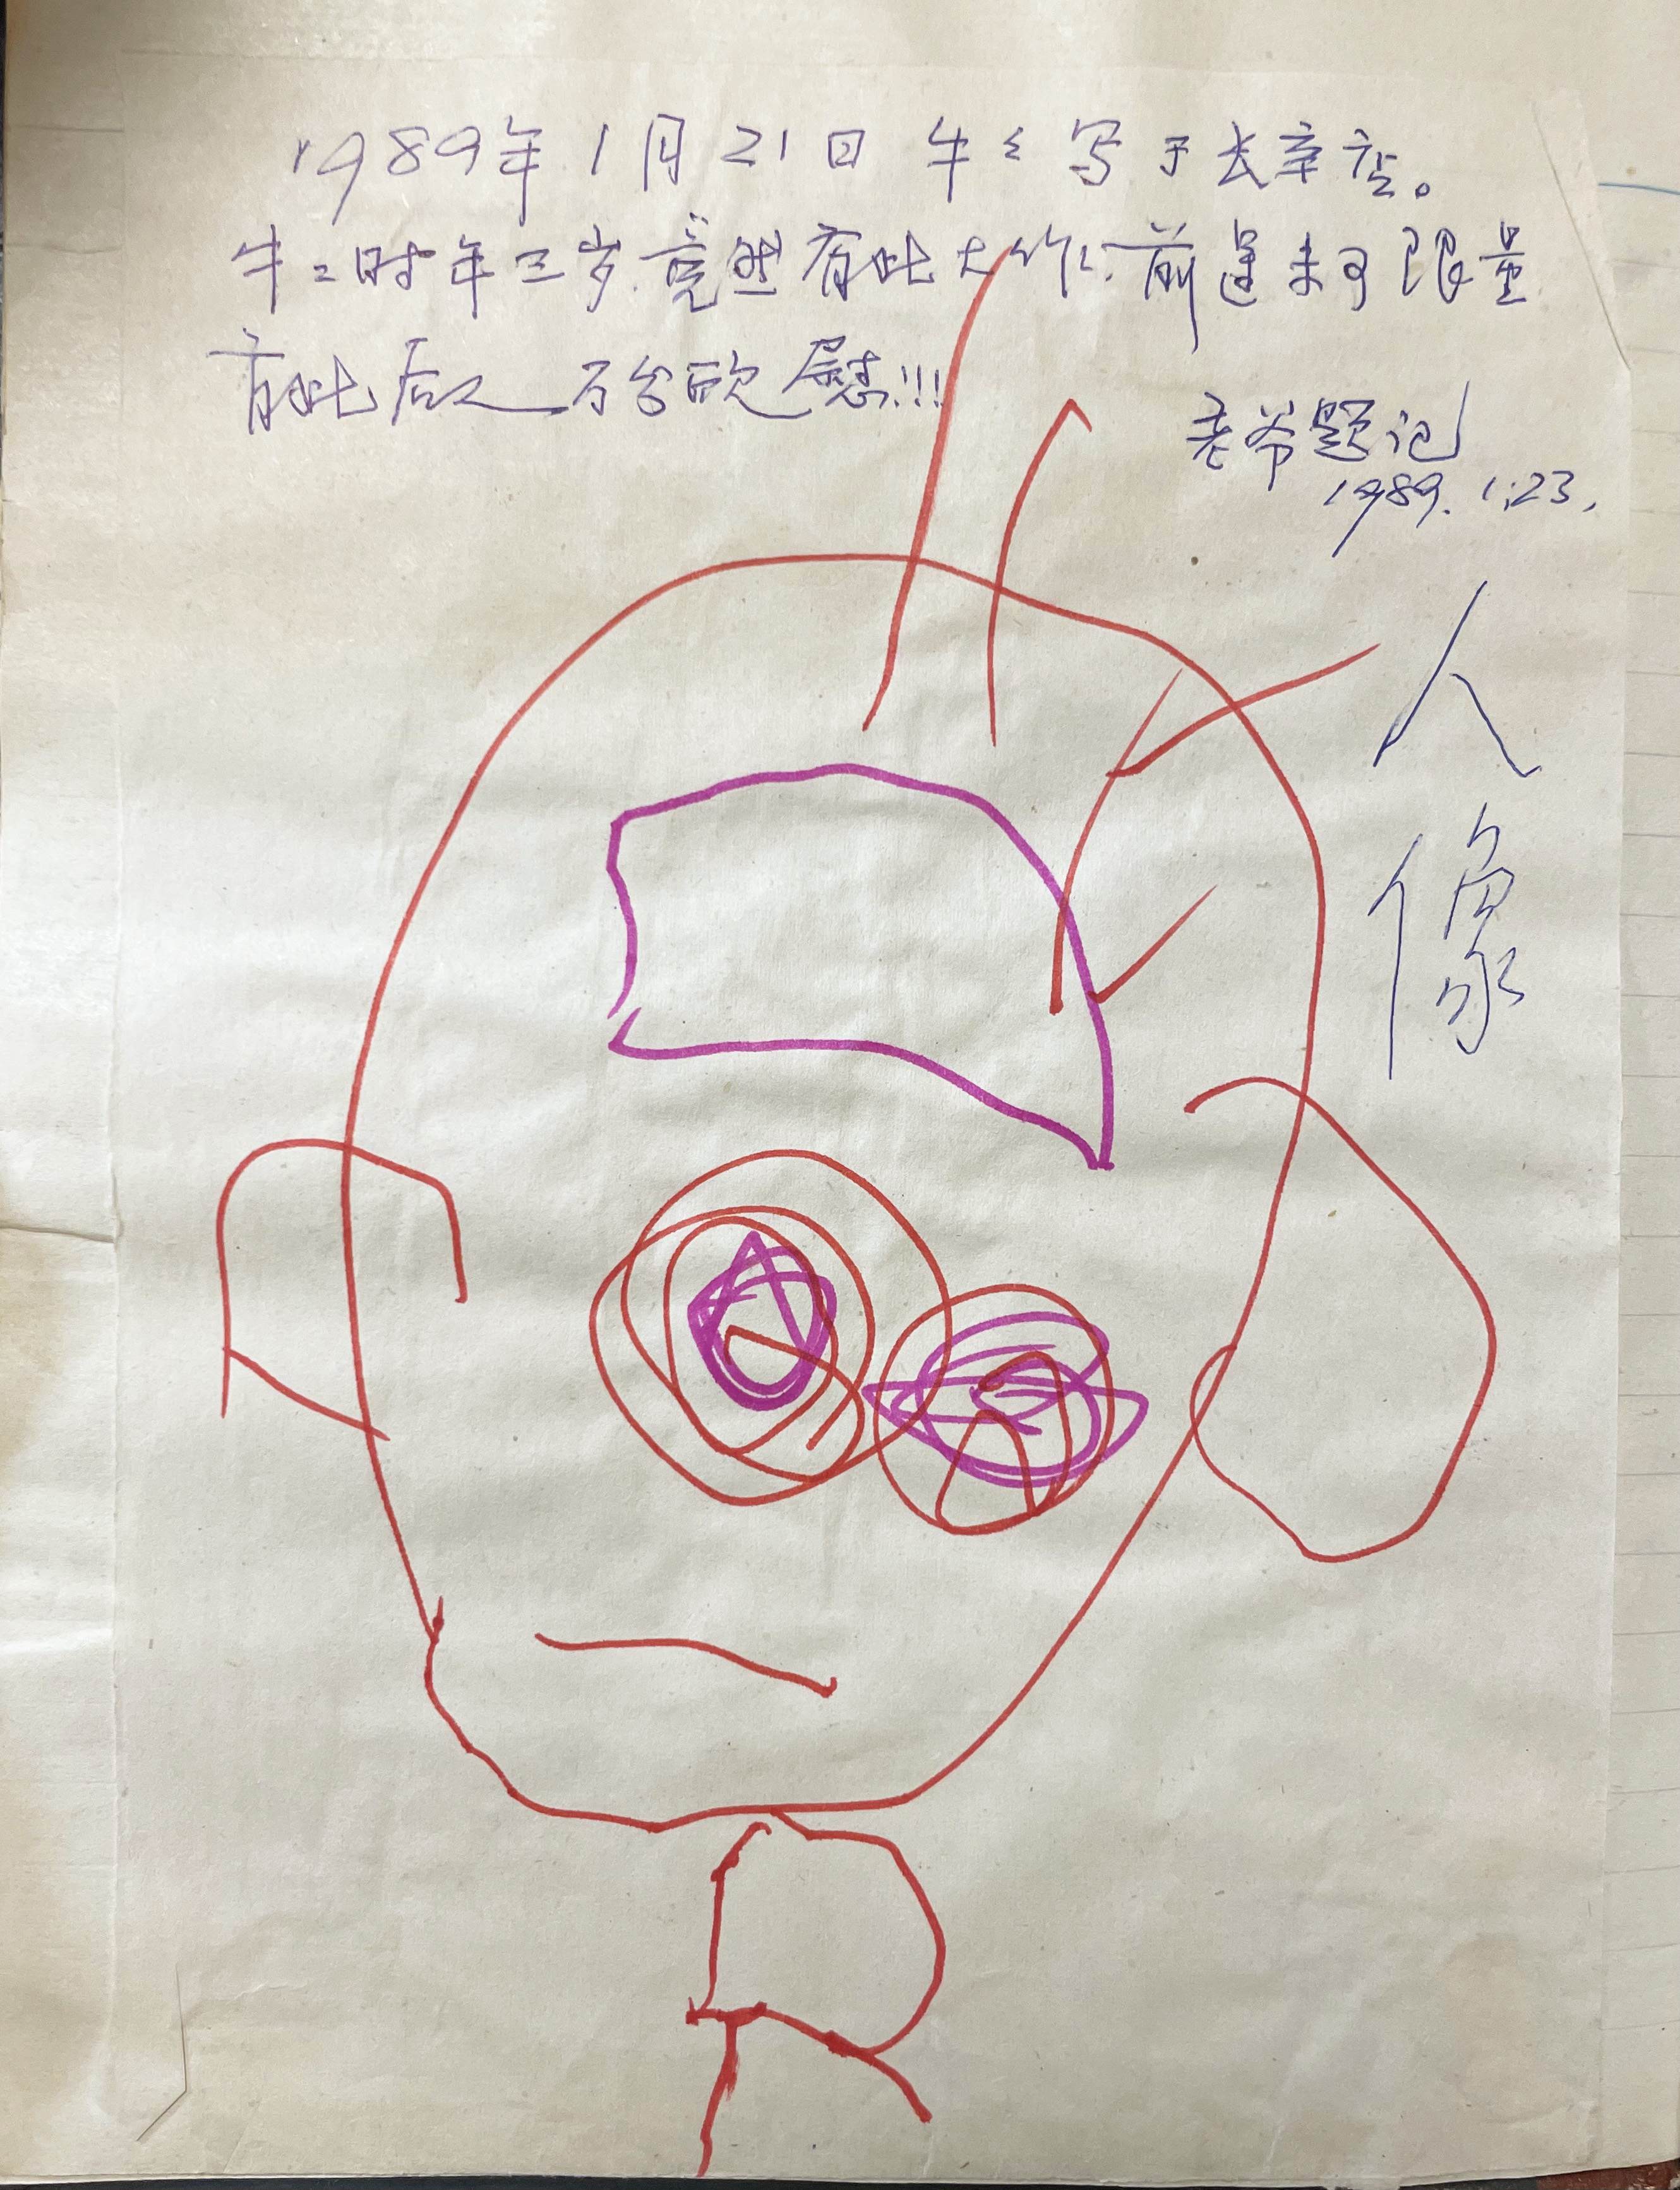 1989年1月21日 牛々写于长辛店。
牛二时年三岁.竟然有此大作.前途未可限量
有此后人万分欣慰!!!
老爷题记
1989.1.23.
人
像